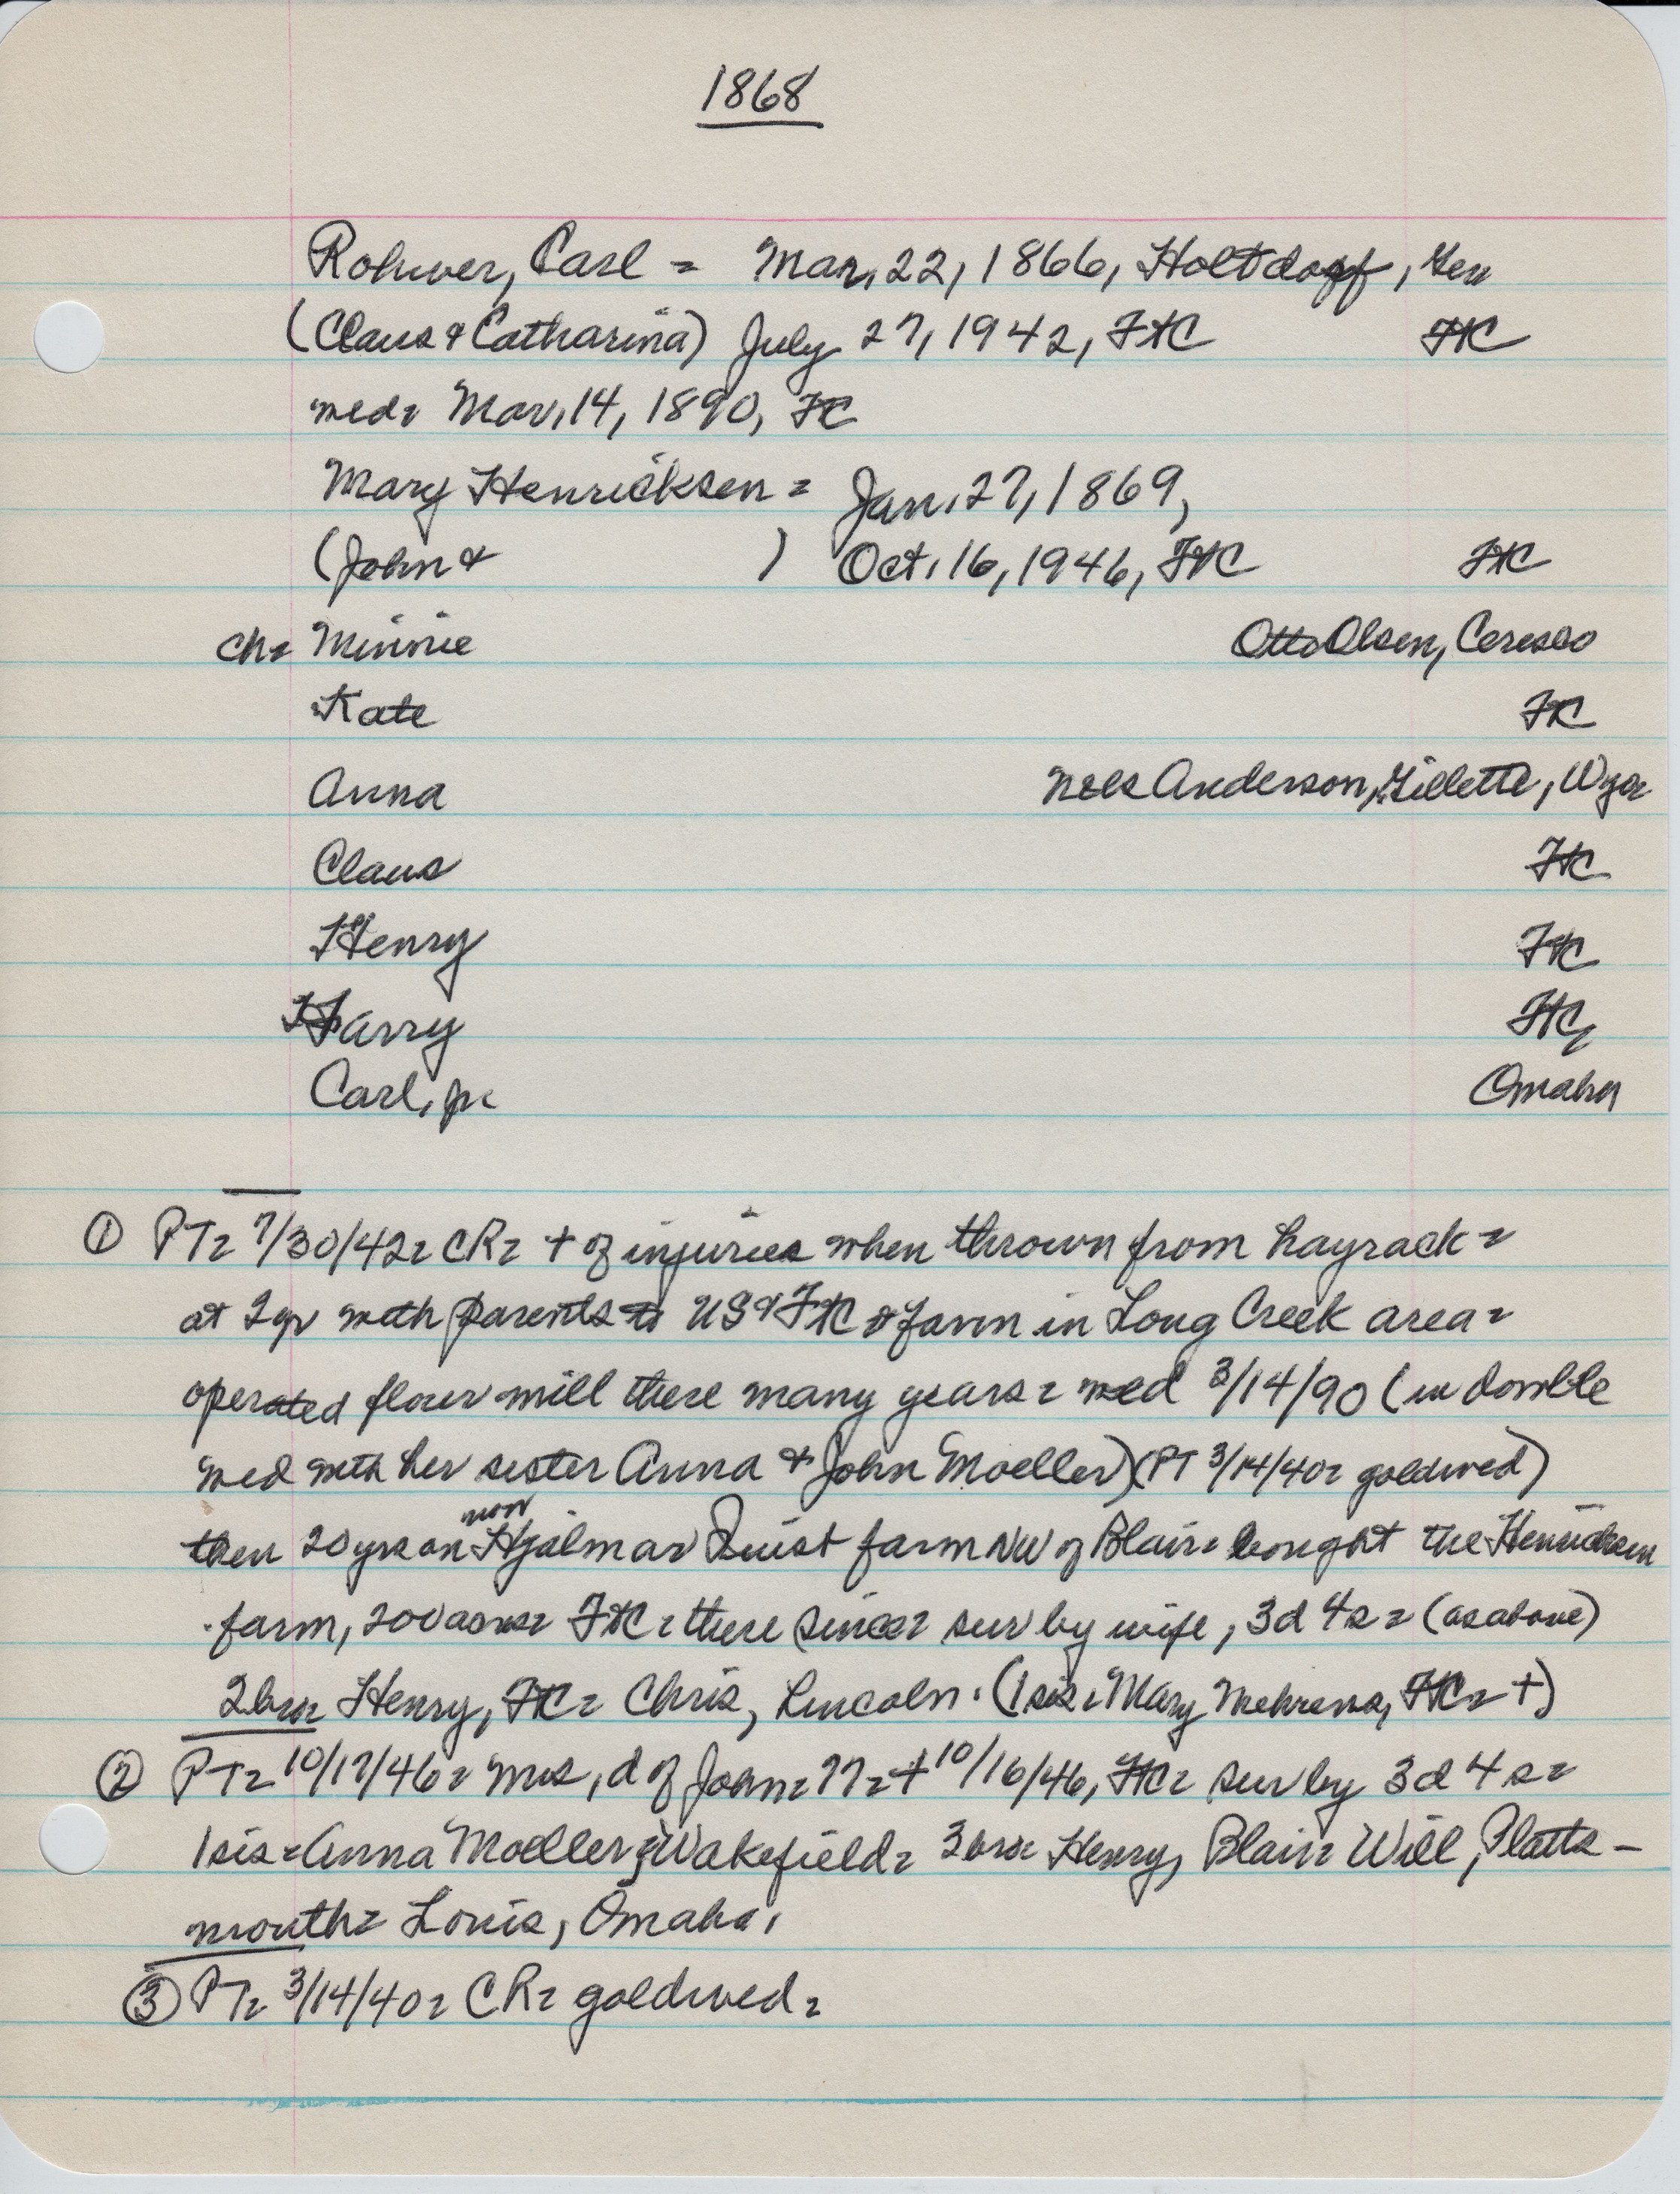 1868
Rohwer, Carl = Mar, 22, 1866, Holtdorf, Ger
(Claus & Catharina) July 27, 1942, FtC FtC
wed= Mar, 14, 1890, FtC
Mary Henricksen = Jan, 27, 1869,
(John & ) Oct, 16, 1946, FtC FtC
ch= Minnie Otto Olsen, Ceresco
Kate FtC
Anna Nels Anderson, Gillette, Wyo=
Claus FtC
Henry FtC
Harry FtC,
Carl, jr Omaha
① PT= 7/30/42= CR= + of injuries when thrown from hayrack =
at 2 yr with parents to US & FtC & farm in Long Creek area=
operated flour mill there many years= wed 3/14/90 (in double
wed with her sister Anna & John Moeller) (PT 3/14/40= goldwed)
now
then 20 yrs on Hjalmar Quist farm NW of Blair= bought the Henricksen
farm, 200 acres= FtC= there since= sur by wife, 3d 4s= (as above)
2 bro= Henry, FtC= Chris, Lincoln. (1 sis= Mary Mehrens, FtC= +)
② PT= 10/17/46= Mrs, d of John= 77= + 10/16/46, FtC= sur by 3d 4s=
1 sis= Anna Moeller, Wakefield= 3 bro= Henry, Blair= Will, Platts-
mouth= Louis, Omaha,
③ PT= 3/14/40= CR= goldwed=